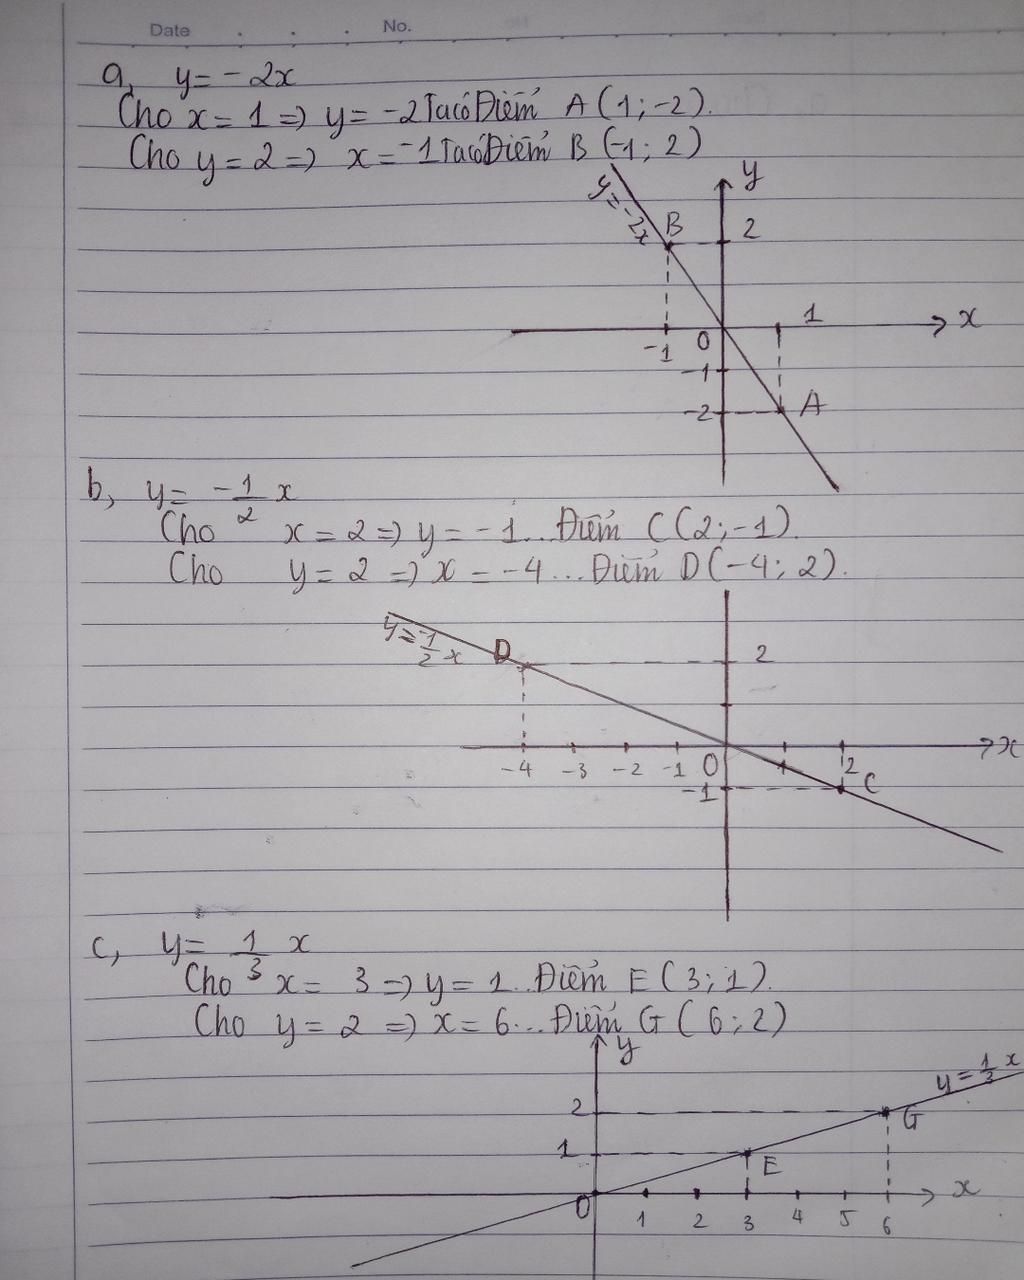 Date No.
a, y = -2x
Cho x = 1 => y = -2 Ta có Điểm A (1; -2).
Cho y = 2 => x = -1 Ta có Điểm B (-1; 2)
y
y = -2x
B
2
1
x
-1
0
-1
-2
A
b, y = -1/2 x
Cho x = 2 => y = -1 ... Điểm C (2; -1).
Cho y = 2 => x = -4 ... Điểm D (-4; 2).
y = -1/2 x
D
2
x
-4 -3 -2 -1 0 1 2
-1
C
c, y = 1/3 x
Cho x = 3 => y = 1 ... Điểm E (3; 1).
Cho y = 2 => x = 6 ... Điểm G (6; 2)
y
y = 1/3 x
2
G
1
E
x
0 1 2 3 4 5 6